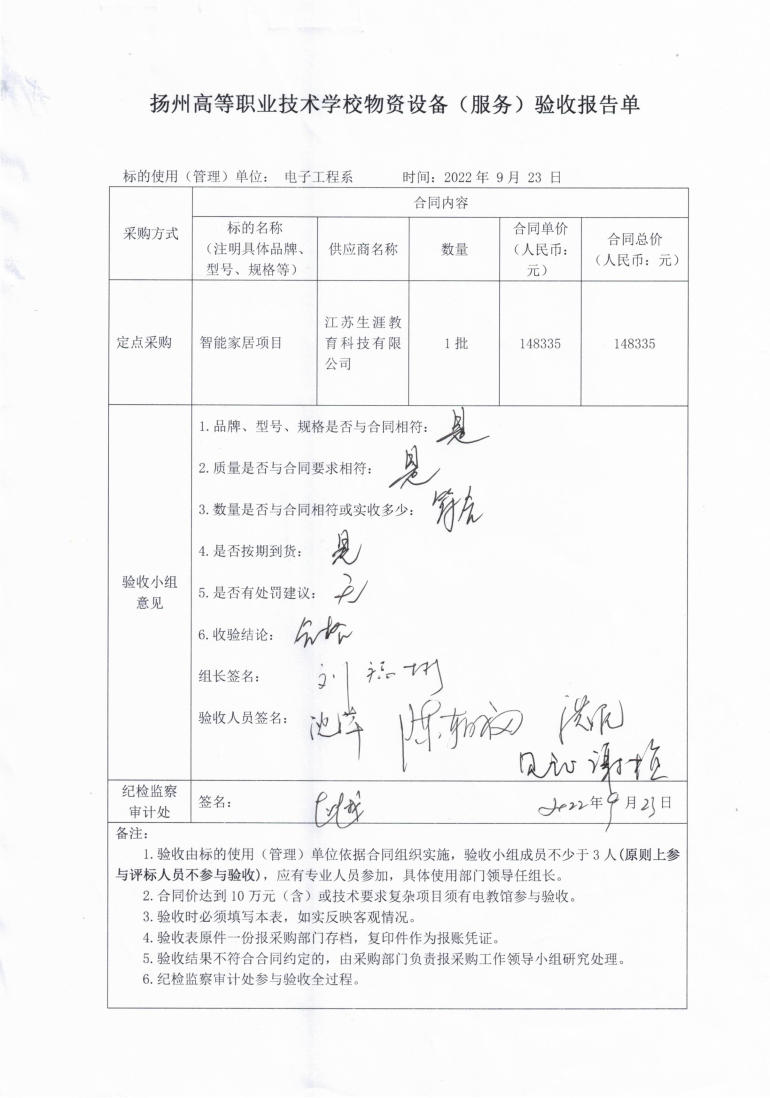 扬州高等职业技术学校物资设备（服务）验收报告单
标的使用（管理）单位： 电子工程系 时间：2022 年 9 月 23 日
采购方式
合同内容
标的名称
（注明具体品牌、
型号、规格等）
供应商名称
数量
合同单价
（人民币：
元）
合同总价
（人民币：元）
定点采购
智能家居项目
江苏生涯教
育科技有限
公司
1 批
148335
148335
验收小组
意见
1.品牌、型号、规格是否与合同相符： 是
2.质量是否与合同要求相符： 是
3.数量是否与合同相符或实收多少： 符合
4.是否按期到货： 是
5.是否有处罚建议： 无
6.收验结论： 合格
组长签名： 刘
验收人员签名： 池萍 陈
谢
纪检监察
审计处
签名：
2022年 9 月 23 日
备注：
1.验收由标的使用（管理）单位依据合同组织实施，验收小组成员不少于 3 人(原则上参
与评标人员不参与验收)，应有专业人员参加，具体使用部门领导任组长。
2.合同价达到 10 万元（含）或技术要求复杂项目须有电教馆参与验收。
3.验收时必须填写本表，如实反映客观情况。
4.验收表原件一份报采购部门存档，复印件作为报账凭证。
5.验收结果不符合合同约定的，由采购部门负责报采购工作领导小组研究处理。
6.纪检监察审计处参与验收全过程。